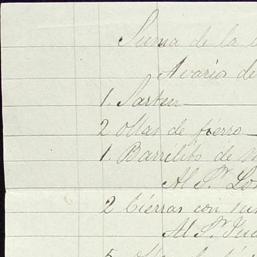 Suma de la
Avario de
1 Sarten
2 ollas de fierro
1 Barrilito de
Al Sr. Lo
2 Cierras con
Al Sr.